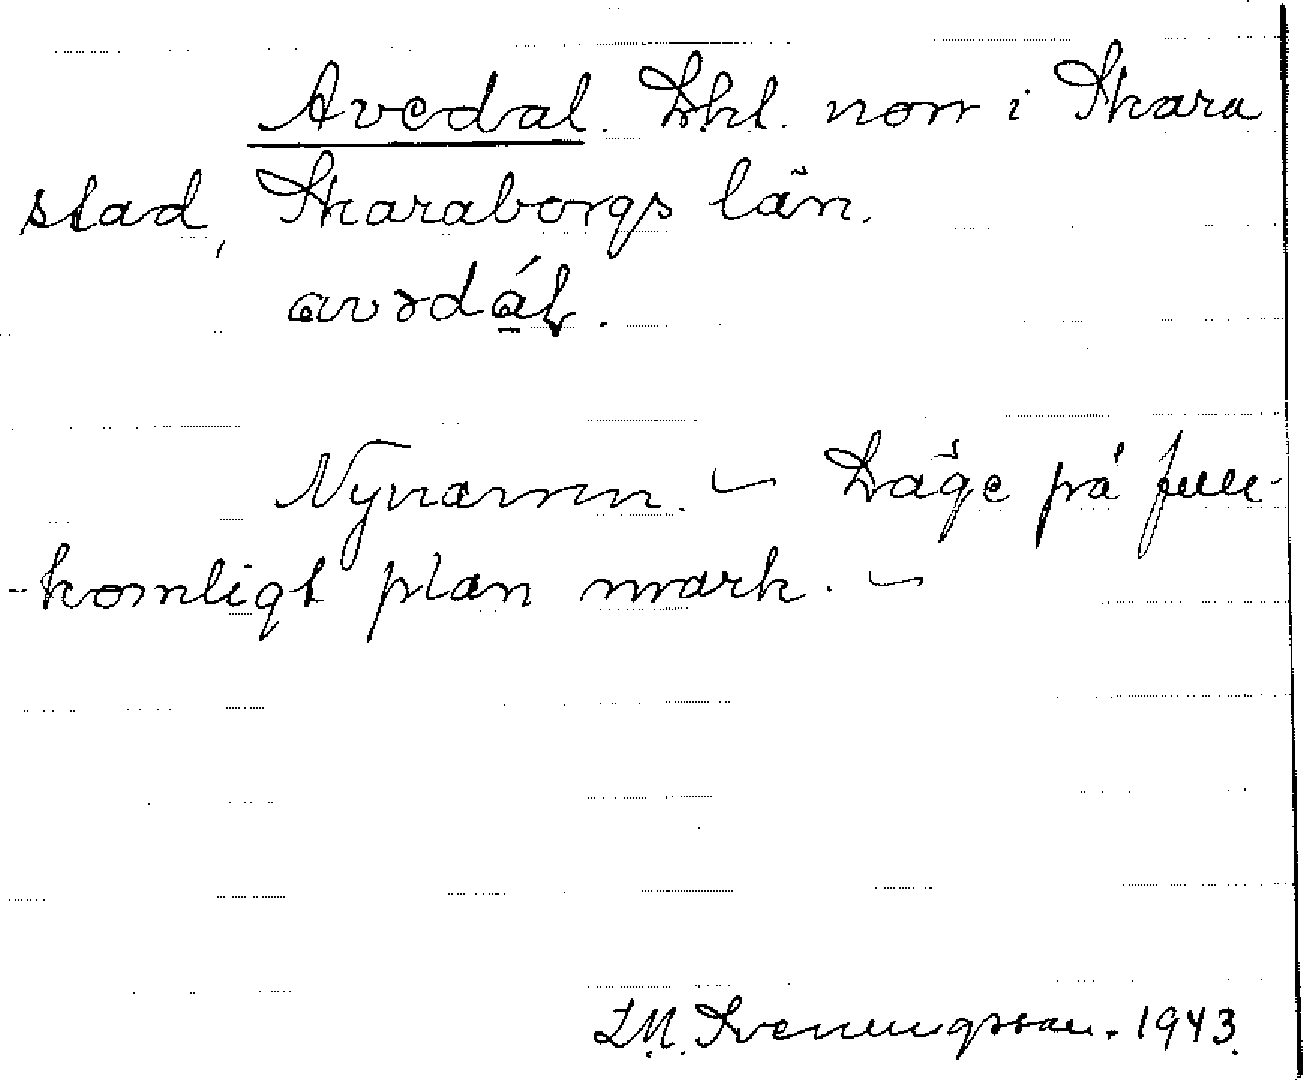 Avedal. Lhl. norr i Skara
stad, Skaraborgs län.
avədáł.
Nynamn. – Läge på full-
-komligt plan mark. –
I.M. Sveningsson. 1943.